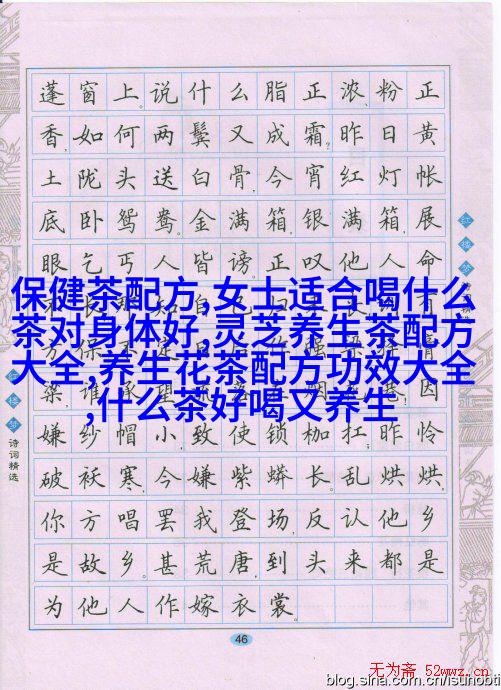 蓬窗上。说什么脂正浓、粉正
香,如何两鬓又成霜?昨日黄
土陇头送白骨,今宵红灯帐
底卧鸳鸯。金满箱,银满箱,展
眼乞丐人皆谤。正叹他人命
保健茶配方,女士适合喝什么
茶对身体好,灵芝养生茶配方
大全,养生花茶配方功效大全
,什么茶好喝又养生
因
嫌纱帽小,致使锁枷扛;昨怜
破袄寒,今嫌紫蟒长。乱烘烘,
你方唱罢我登场,反认他乡
是故乡。甚荒唐,到头来都是
为他人作嫁衣裳
红楼梦
诗词精选
46
无为斋 52wwz.cn
blog.sina.com.cn/isunobti